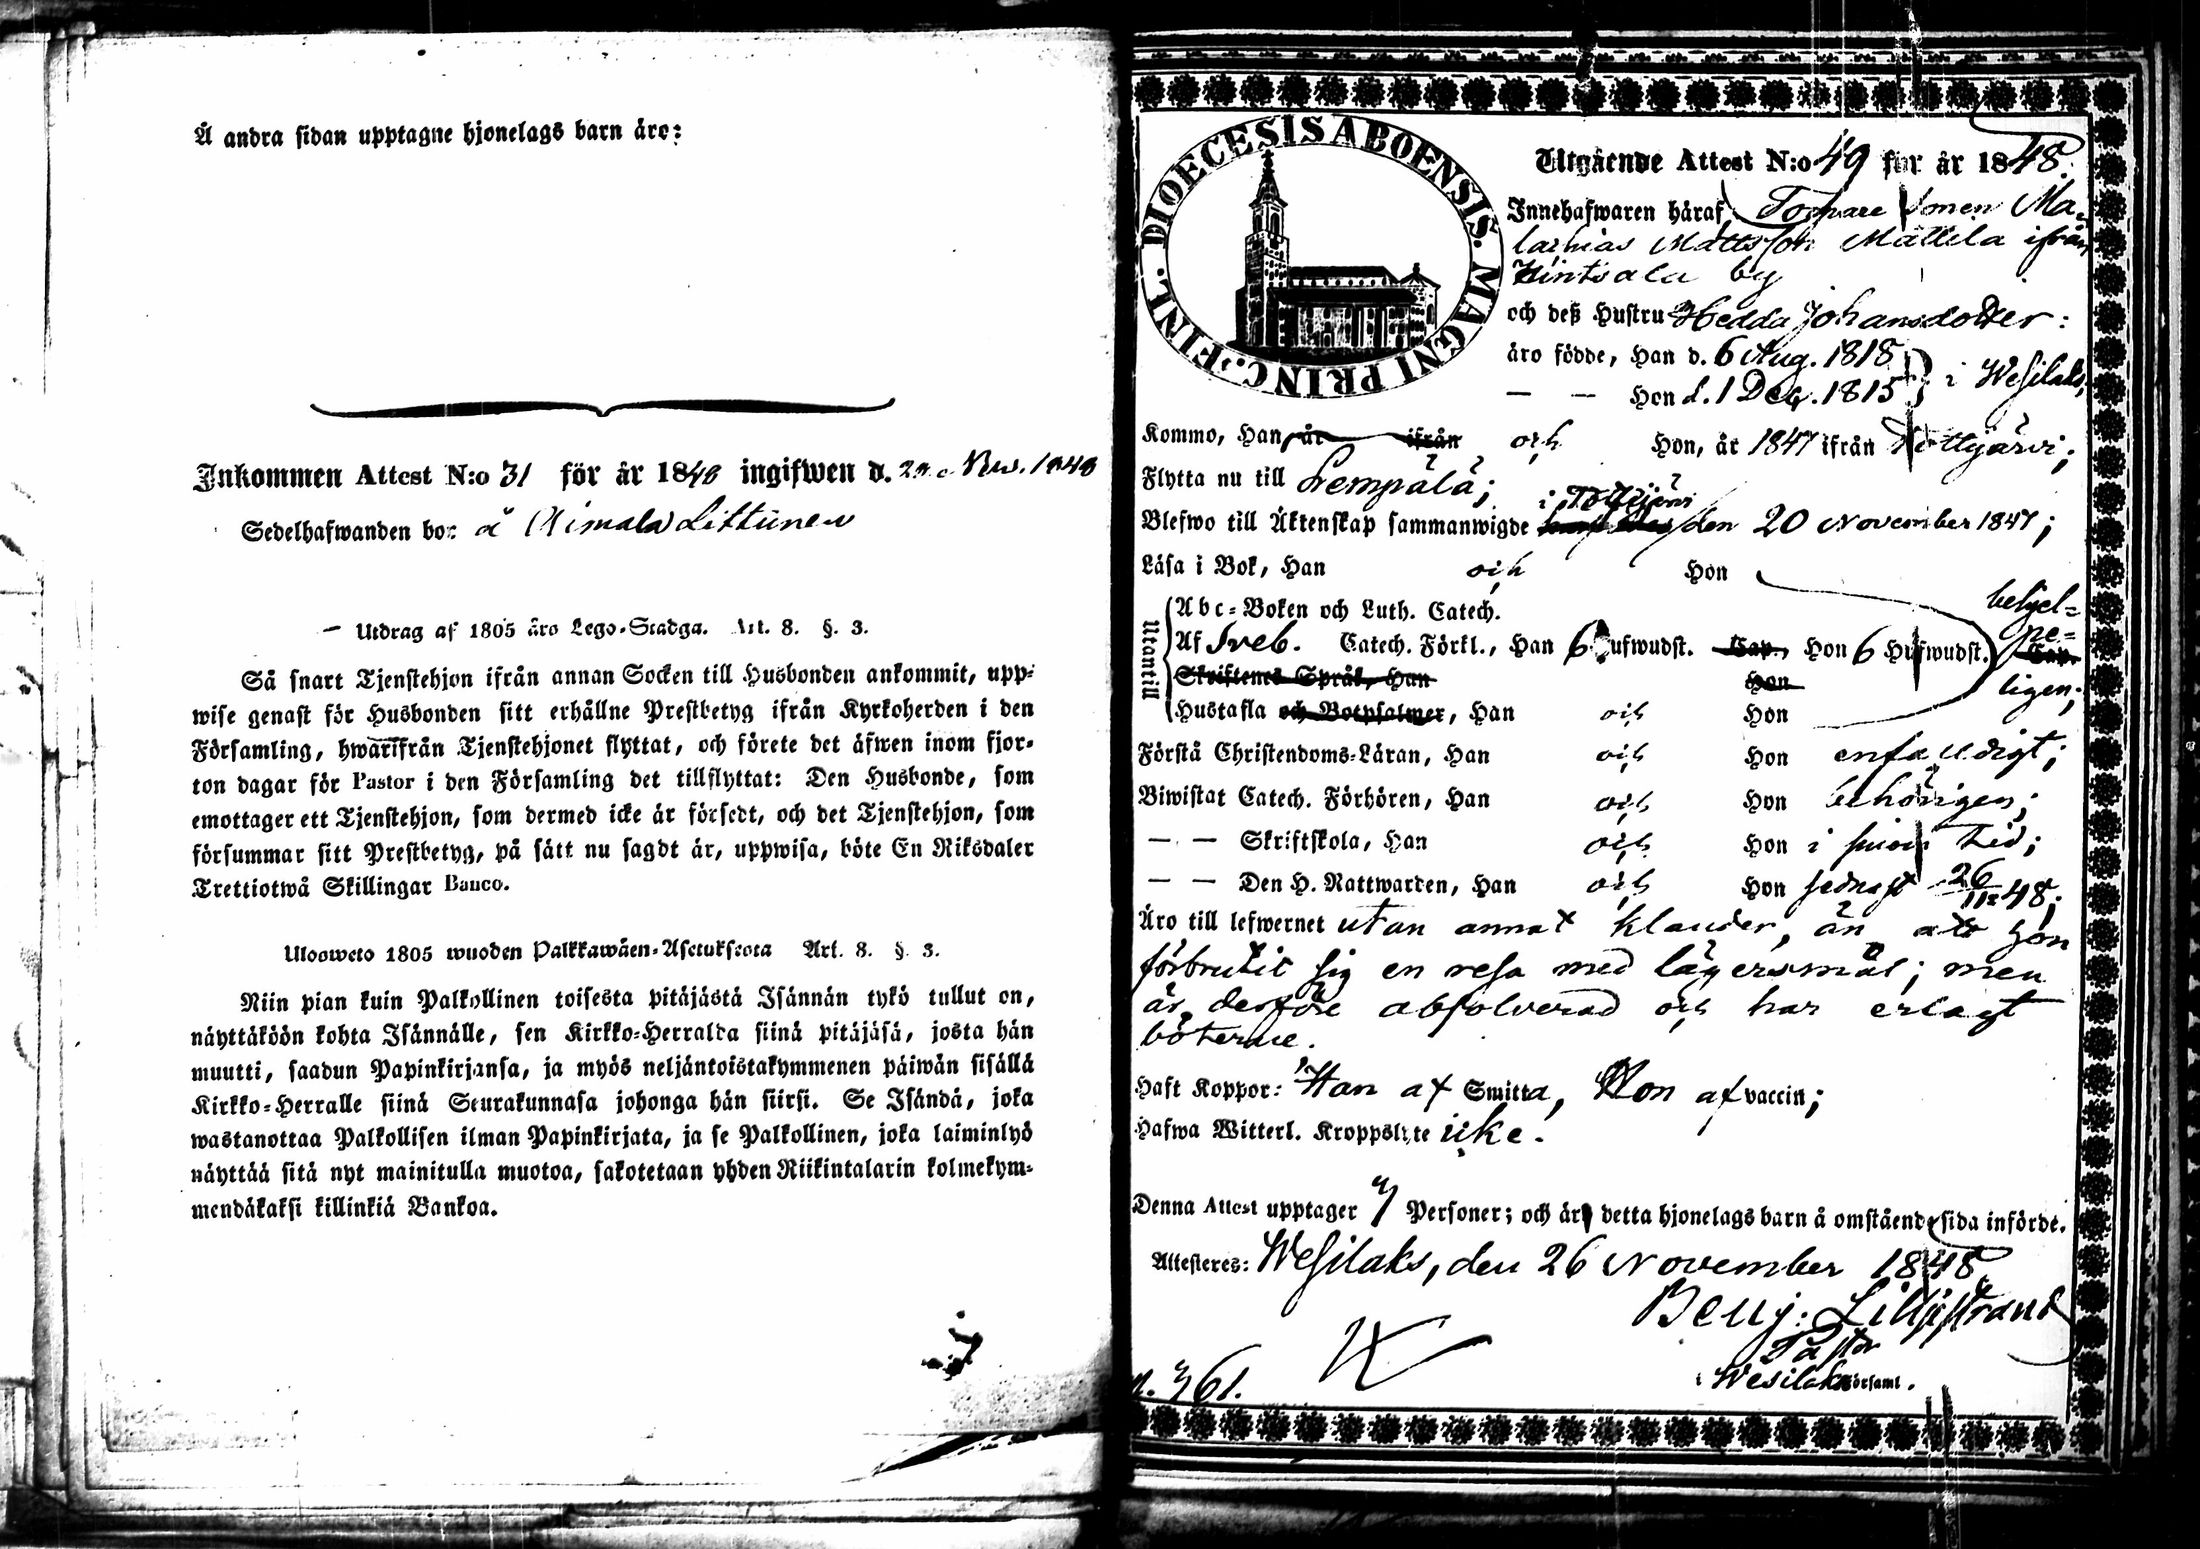 Å andra sidan upptagne hjonelags barn äro:
Inkommen Attest N:o 31 för år 1848 ingifwen d. Nov. 1848
Sedelhafwanden bor å Littunen
Utdrag af 1805 års Lego-Stadga. Art. 8. §. 3.
Så snart Tjenstehjon ifrån annan Socken till Husbonden ankommit, upp-
wise genast för Husbonden sitt erhållne Prestbetyg ifrån Kyrkoherden i den
Församling, hwarifrån Tjenstehjonet flyttat, och förete det äfwen inom fjor-
ton dagar för Pastor i den Församling det tillflyttat: Den Husbonde, som
emottager ett Tjenstehjon, som dermed icke är försedt, och det Tjenstehjon, som
försummar sitt Prestbetyg, på sätt nu sagdt är, uppwisa, böte En Riksdaler
Trettiotwå Skillingar Banco.
Ulosweto 1805 wuoden Palkkawäen-Asetuksesta Art. 8. §. 3.
Niin pian kuin Palkollinen toisesta pitäjästä Isännän tykö tullut on,
näyttäköön kohta Isännälle, sen Kirkko-Herralda siinä pitäjäsä, josta hän
muutti, saadun Papinkirjansa, ja myös neljäntoistakymmenen päiwän sisällä
Kirkko-Herralle siinä Seurakunnasa johonga hän siirsi. Se Isändä, joka
wastanottaa Palkollisen ilman Papinkirjata, ja se Palkollinen, joka laiminlyö
näyttää sitä nyt mainitulla muotoa, sakotetaan yhden Riikintalarin kolmekym-
mendäkaksi killinkiä Bankoa.
DIOECESIS ABOENSIS. MAGNI PRINC. FINL.
Utgående Attest N:o 49 för år 1848.
Innehafwaren häraf, Torpare Sonen Ma-
lachias Mattsson Mattila ifrån
Hintsala by
och deß Hustru Hedda Johansdotter:
äro födde, Han d. 6 Aug. 1818
— — Hon d. 1 Dec. 1815 } i Wesilaks;
Kommo, Han, år ifrån och Hon, år 1847 ifrån Tottijärvi;
Flytta nu till Lempälä;
i Tottijärvi
Blefwo till Äktenskap sammanwigde den 20 November 1847;
Läsa i Bok, Han och Hon
Utantill
Abc-Boken och Luth. Catech.
Af Sveb. Catech. Förkl., Han 6 Hufwudst. Cap., Hon 6 Hufwudst. Cap.
behjel-
pe-
ligen;
Skriftenes Språk, Han Hon
Hustafla och Botpsalmer, Han och Hon
Förstå Christendoms-Läran, Han och Hon enfaldigt;
Biwistat Catech. Förhören, Han och Hon behörigen;
— — Skriftskola, Han och Hon i sinom tid;
— — Den H. Nattwarden, Han och Hon sednast 26/11 48;
Äro till lefwernet utan annat klander, än att hon
förbrutit sig en resa med lägersmål; men
är derföre absolverad och har erlagt
böterne.
Haft Koppor: Han af Smitta, Hon af vaccin;
Hafwa Witterl. Kroppslyte icke.
Denna Attest upptager Personer; och äro detta hjonelags barn å omstående sida införde.
Attesteres: Wesilaks, den 26 November 1848
Benj: Liljestrand
Pastor
i Wesilaks församl.
61.